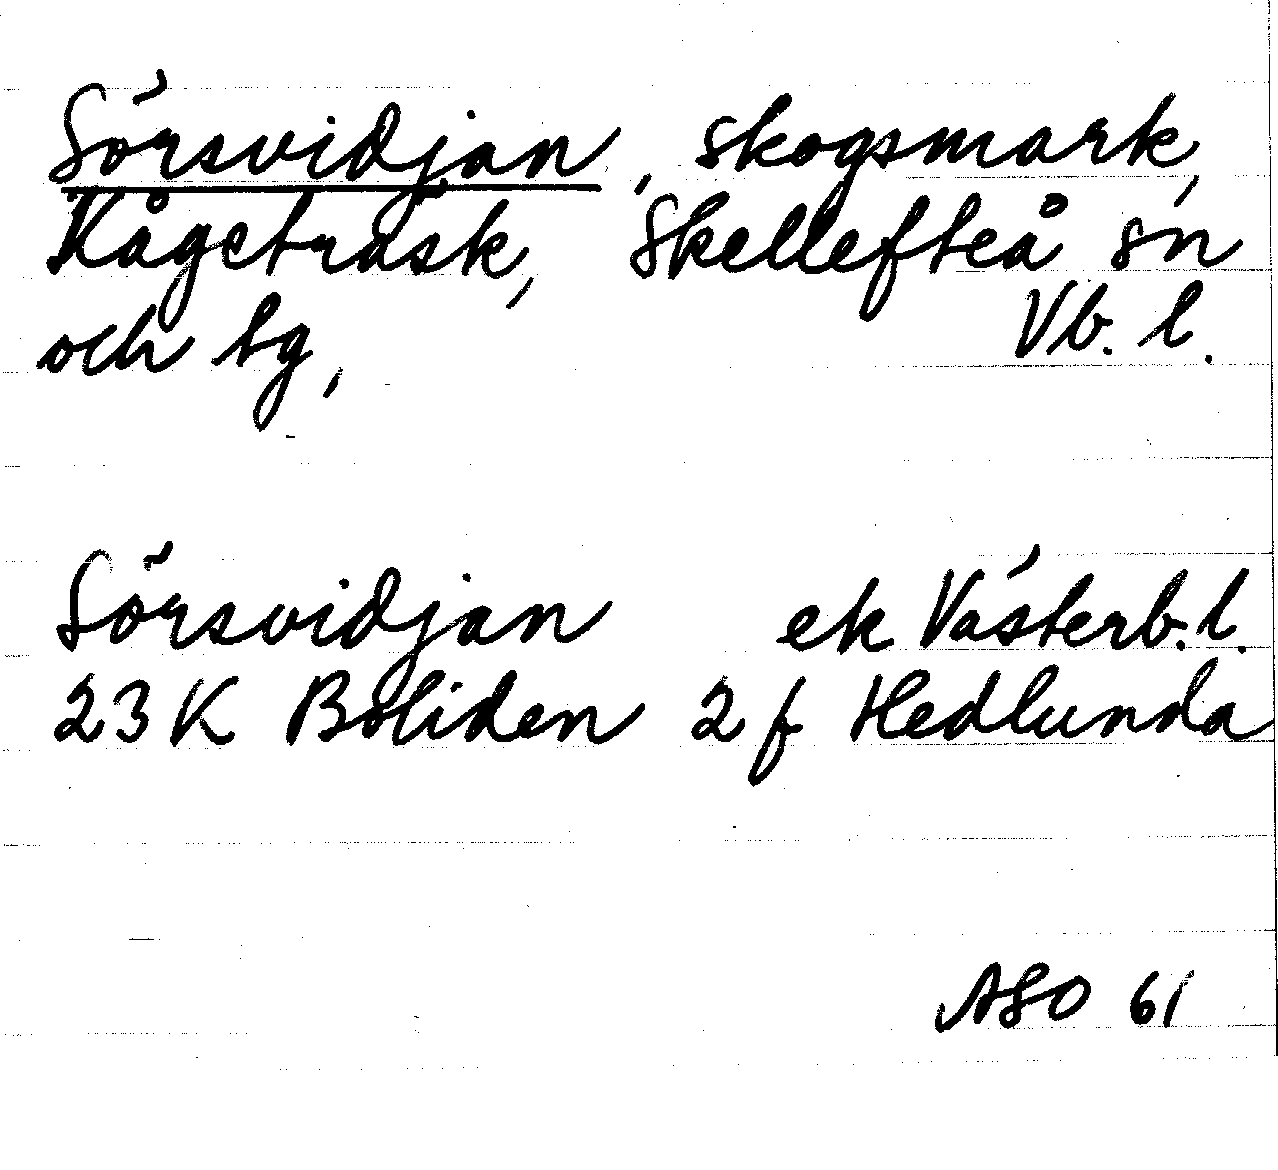 Sörsvidjan, skogsmark,
Kågeträsk, Skellefteå sn
och tg, Vb. l.
Sörsvidjan ek Västerb. l.
23 K Boliden 2 f Hedlunda
ASO 61